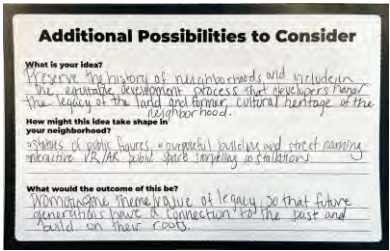 Additional Possibilities to Consider
What is your idea?
Preserve the history of neighborhoods, and include in
the equitable development process that developers honor
the legacy of the land and former, cultural heritage of the
neighborhood.
How might this idea take shape in
your neighborhood?
statues of public figures, purposeful building and street naming
interactive VR/AR public space storytelling installations
What would the outcome of this be?
Promoting the theme/value of legacy, so that future
generations have a connection to the past and
build on their roots.